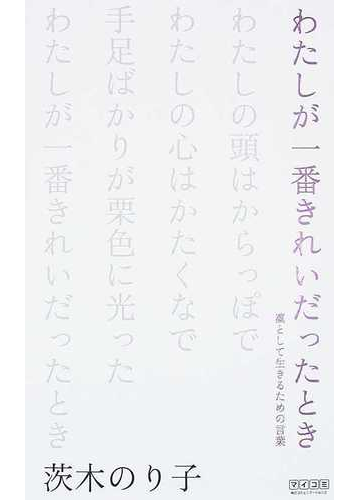 わたしが一番きれいだったとき
凛として生きるための言葉
わたしの頭はからっぽで
わたしの心はかたくなで
手足ばかりが栗色に光った
わたしが一番きれいだったとき
茨木のり子
マイコミ